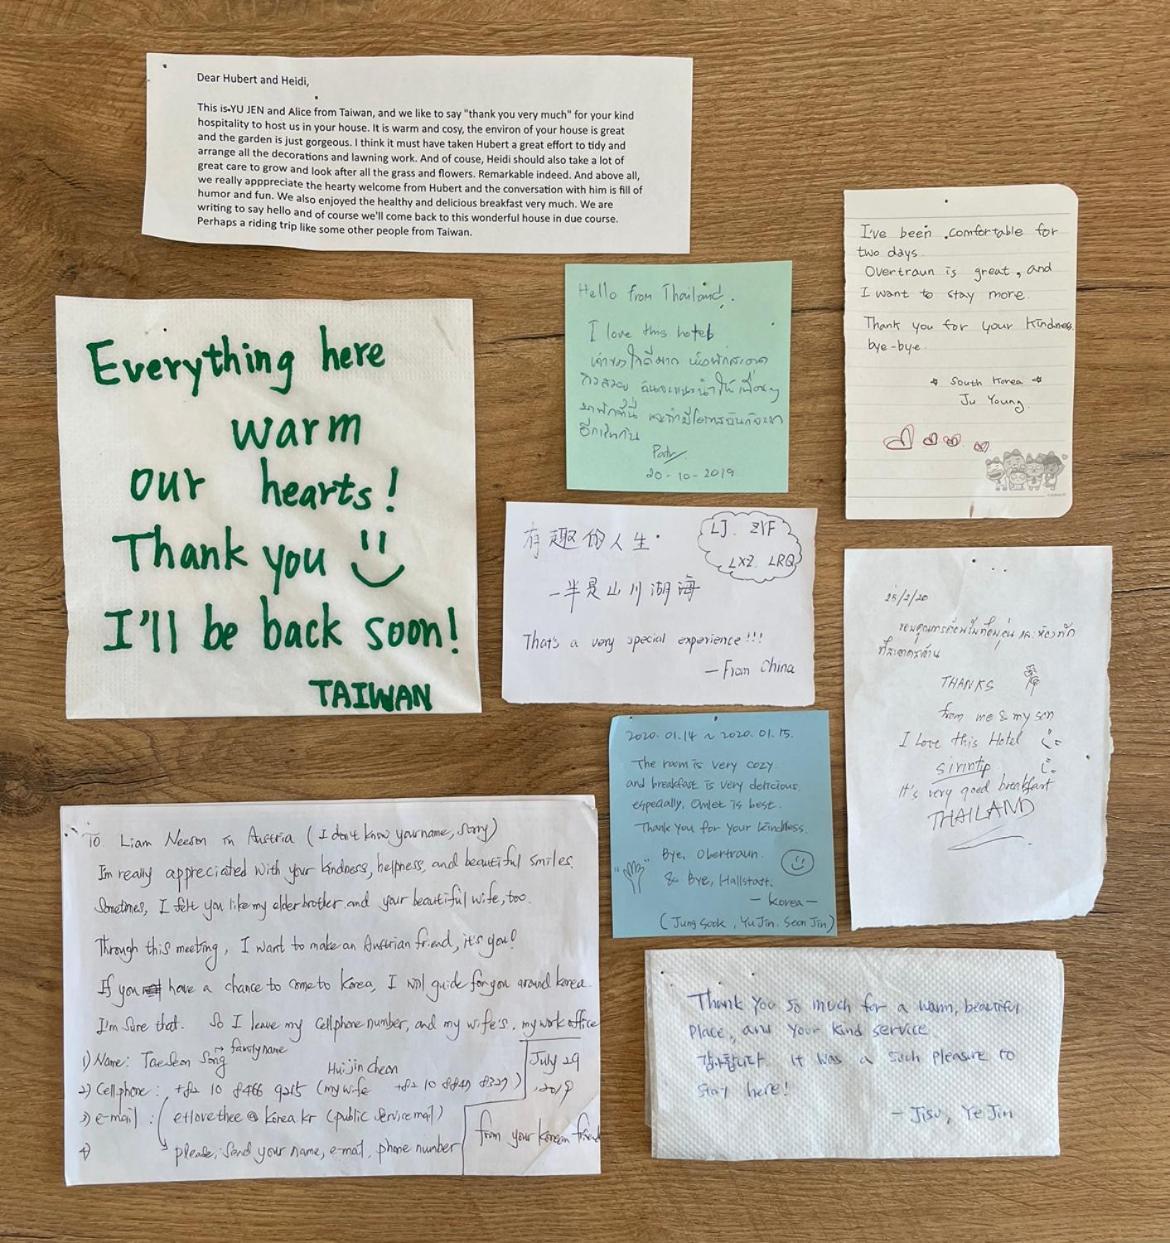 Dear Hubert and Heidi,
This is YU JEN and Alice from Taiwan, and we like to say "thank you very much" for your kind
hospitality to host us in your house. It is warm and cosy, the environ of your house is great
and the garden is just gorgeous. I think it must have taken Hubert a great effort to tidy and
arrange all the decorations and lawning work. And of couse, Heidi should also take a lot of
great care to grow and look after all the grass and flowers. Remarkable indeed. And above all,
we really apppreciate the hearty welcome from Hubert and the conversation with him is fill of
humor and fun. We also enjoyed the healthy and delicious breakfast very much. We are
writing to say hello and of course we'll come back to this wonderful house in due course.
Perhaps a riding trip like some other people from Taiwan.
I've been comfortable for
two days.
Overtraun is great, and
I want to stay more.
Thank you for your kindness.
bye-bye.
South Korea
Ju Young.
Hello from Thailand.
I love this hotel
20-10-2019
Everything here
warm
our hearts!
Thank you
I'll be back soon!
TAIWAN
有趣的人生·
一半是山川湖海
LJ. ZYF
LXZ. LRQ
That's a very special experience!!!
— From China
25/2/20
THANKS 愛
from me & my son
I Love this Hotel
sirintip
It's very good breakfast
THAILAND
2020.01.14 ~ 2020.01.15.
The room is very cozy
and breakfast is very delicious.
especially, Omlet is best.
Thank you for your kindness.
Bye, Obertraun.
& Bye, Hallstatt.
- Korea -
(Jung Sook, YuJin. Seon Jin)
To Liam Neeson in Austria (I don't know your name, sorry)
I'm really appreciated with your kindness, helpness, and beautiful smiles.
Sometimes, I felt you like my elder brother and your beautiful wife, too.
Through this meeting, I want to make an Austrian friend, it's you!
If you have a chance to come to Korea, I will guide for you around Korea.
I'm sure that. So I leave my cellphone number, and my wife's, my work office
1) Name: TaeSeon Song → family name
Huijin cheon
2) Cell phone: +82 10 8466 9215 (my wife +82 10 8849 8327)
3) e-mail: etlovethee@korea.kr (public service mail)
4) please, send your name, e-mail, phone number
July 29
, 2019
from your Korean friend
Thank you so much for a warm, beautiful
place, and your kind service
감사합니다 it was a such pleasure to
stay here!
- Jisu, YeJin